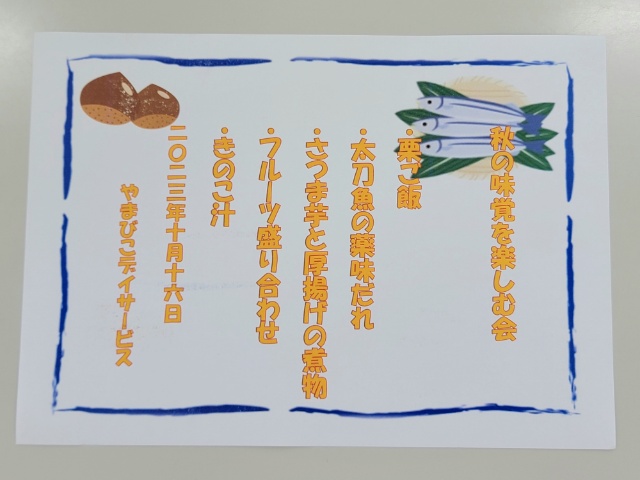 秋の味覚を楽しむ会
・栗ご飯
・太刀魚の薬味だれ
・さつま芋と厚揚げの煮物
・フルーツ盛り合わせ
・きのこ汁
二〇二三年十月十六日
やまびこデイサービス